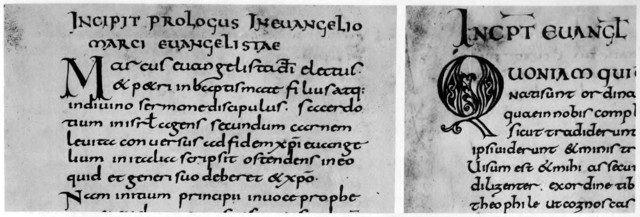 INCIPIT PROLOGUS INEUANGELIO
MARCI EUANGELISTAE
Marcus euangelista di electus
& petri inbaptismate filius atq:
indiuino sermone discipulus. sacerdo
tium in isrl agens secundum carnem
leuita conuersus ad fidem xpi euange
lium in italia scripsit ostendens in eo
quid et generi suo deberet & xpo.
Nam initium principii inuoce prophe
INCPT EUANGL
QUONIAM QUI
NATISUNT ORDINA
quae in nobis compl
sicut tradiderunt
ipsiuiderunt & ministr
Uisum est & mihi assecu
diligenter. exordine tib
theophile ut cognoscas